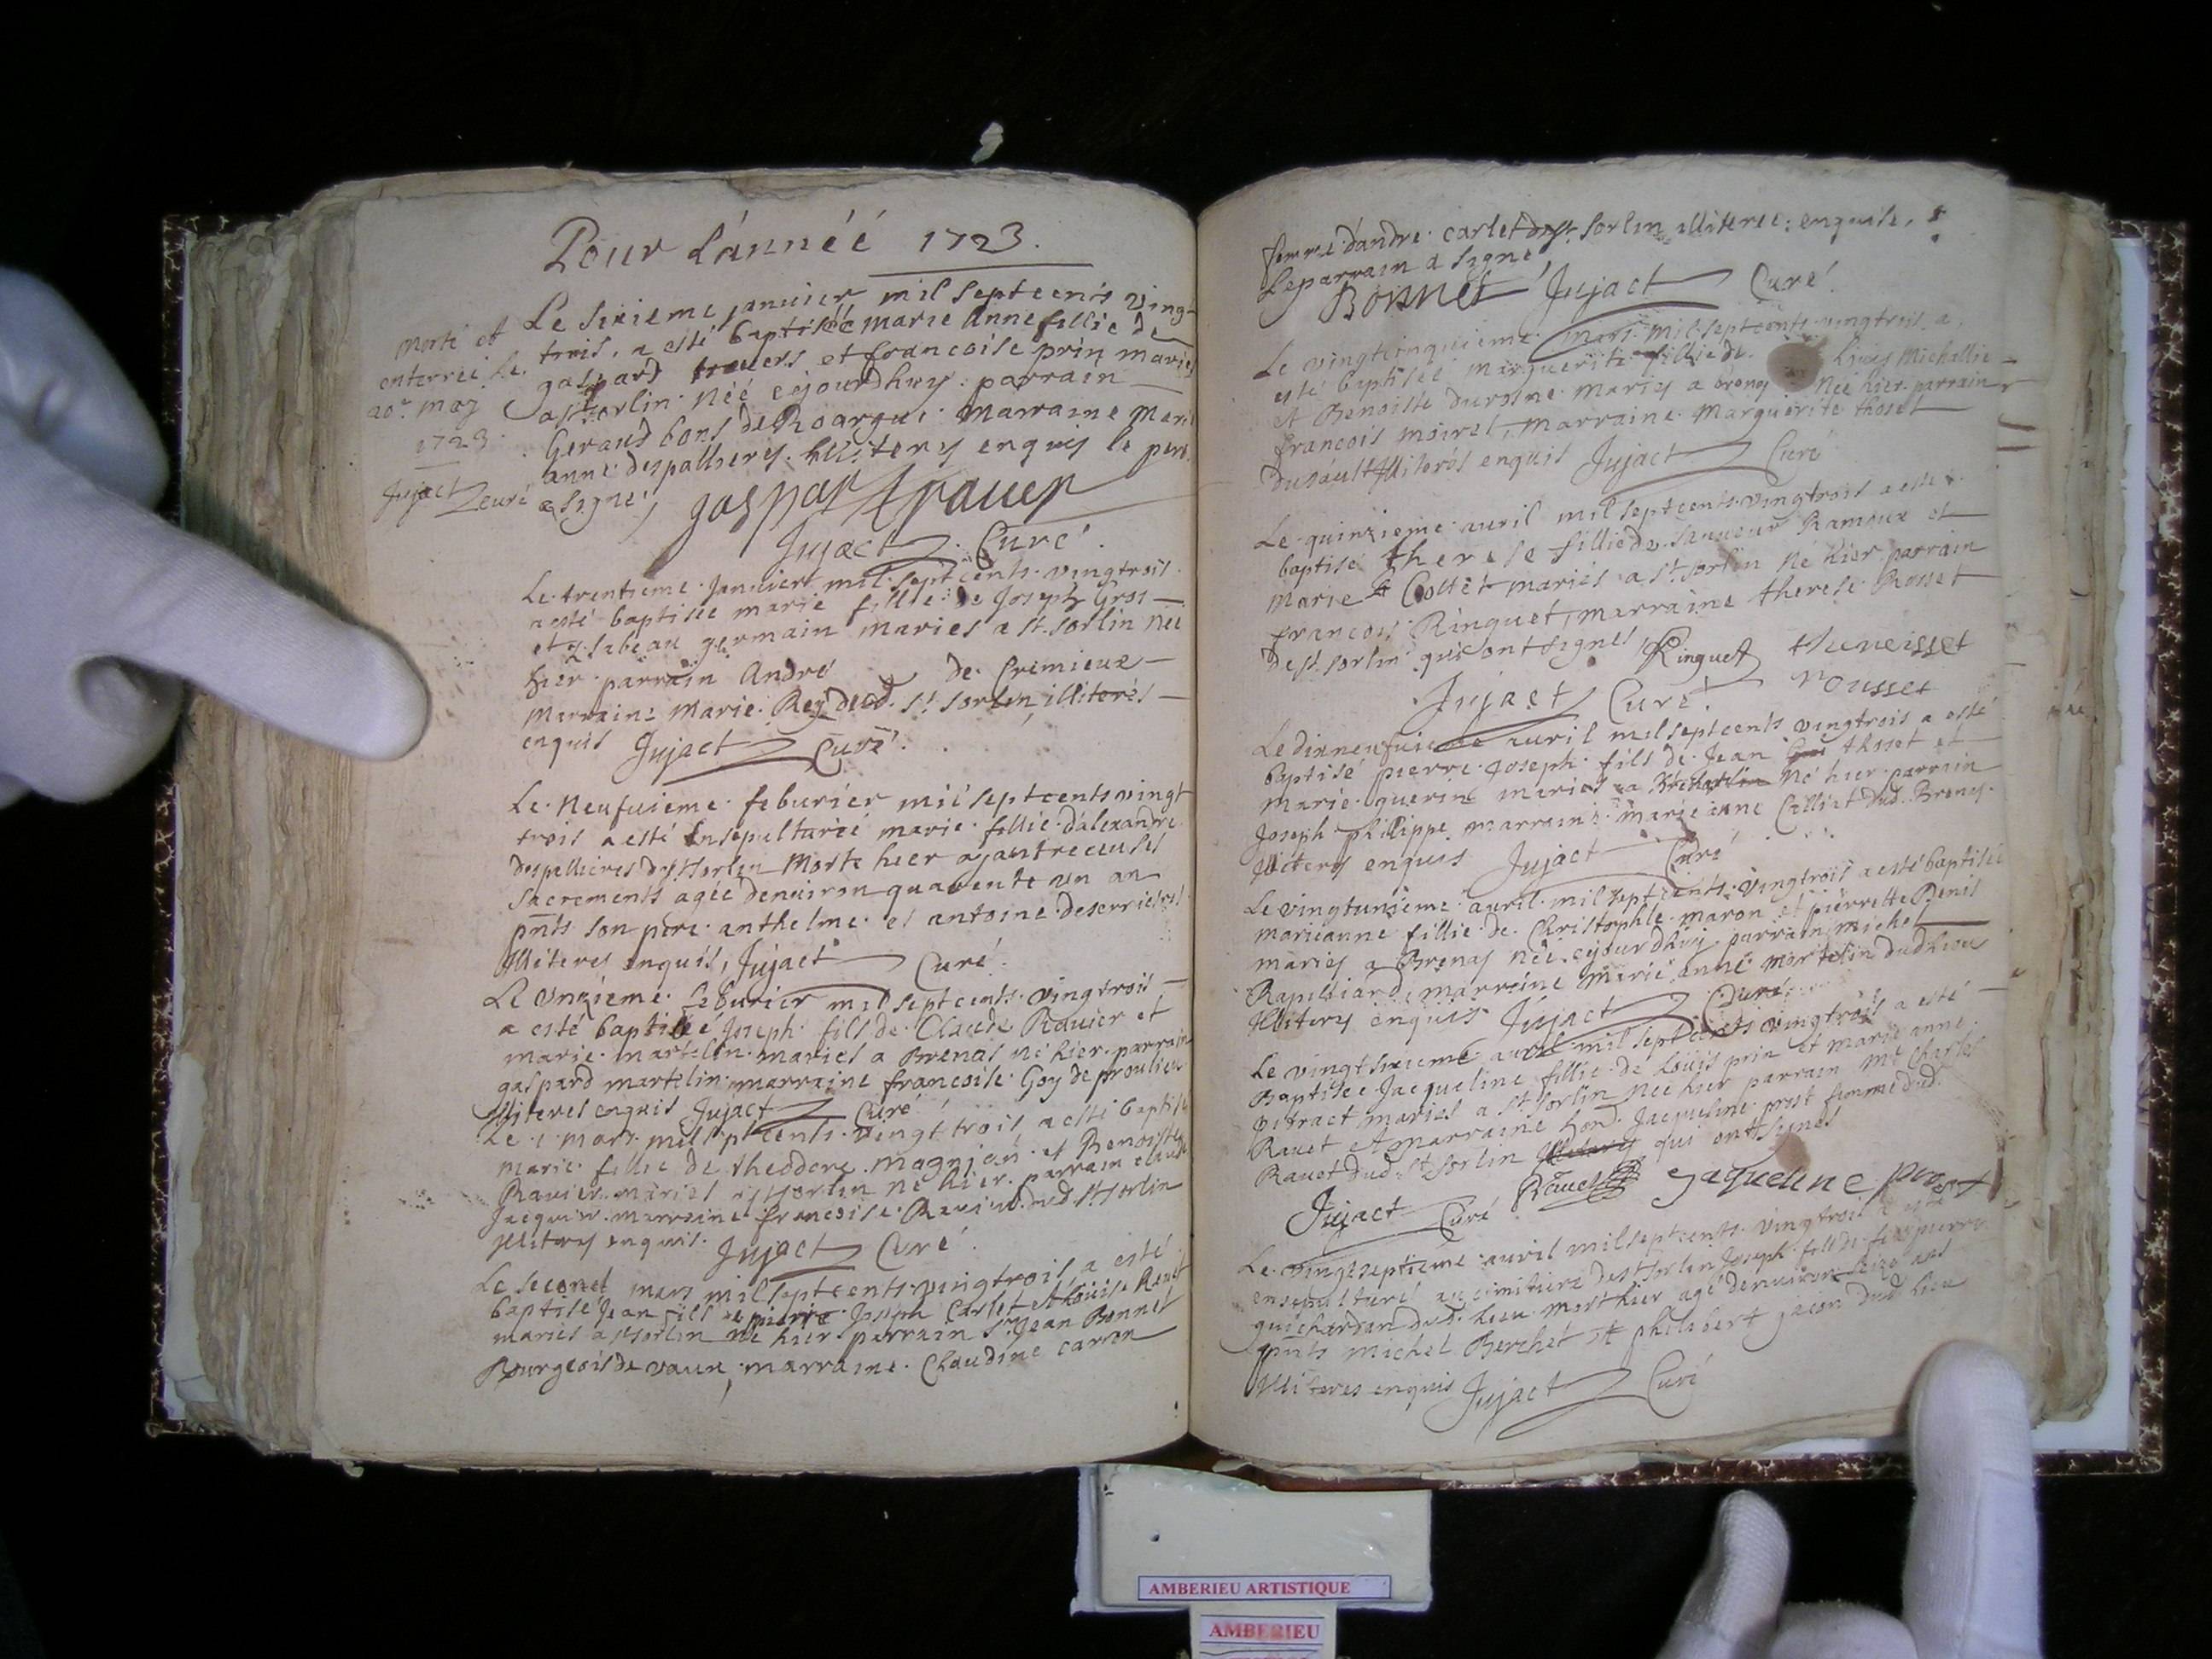 Pour l'année 1723.
morte et
enterrée le
20e may
1723
Jujact curé
Le sixieme januier mil septcents vingt
trois, a esté baptisée marie anne fillie de
gaspard trauers et francoise prin mariés
a st sorlin née cejourdhuy parrain
Geraud bons de Roargue marraine Marie
anne despallieres illiterés enquis le pere
a signé, gaspar trauer
Jujact Curé.
Le trentieme januier mil sept cents vingtrois
a esté baptisée marie fillie de Joseph Gros
et ysabeau germain mariés a st sorlin née
hier parrain André de Cremieux
marraine Marie Rey dud. st sorlin, illiterés
enquis Jujact Curé.
Le neufuieme feburier mil septcents vingt
trois a esté ensepulturée marie fillie d'alexandre
despallieres de st sorlin morte hier ayant receu ses
sacrements agée denuiron quarente un an
pnts son pere anthelme et antoine
illiteres enquis, Jujact Curé.
Le unzieme feburier mil sept cents vingtrois
a esté baptisé Joseph fils de Claude Rauier et
marie martelin mariés a Brenas né hier parrain
gaspard martelin marraine francoise Goy de proulieu
illiterés enquis Jujact Curé
Le 1 mars mil septcents vingt trois a esté baptisé
marie fillie de theodore magnion et Benoiste
Rauier mariés a st sorlin né hier parrain claude
Jacquier marraine francoise Rauier dud st sorlin
illiterés enquis. Jujact Curé.
Le second mars mil septcents vingtrois a esté
baptisé Jean fils de pierre Joseph Carlet et Louise Rauet
mariés a st sorlin né hier parrain Sr Jean Bonnet
Bourgeois de vaux, marraine Claudine carron
femme d'andré carlet de st sorlin illiteree enquise,
le parrain a signé
Bonnet Jujact Curé.
Le vingtcinquieme mars mil septcents vingtrois a
esté baptisée marguerite fillie de Louys Michallie
et Benoiste durosne mariés a breng née hier parrain
francois moirel, marraine Marguerite thoset
dusault illiterés enquis Jujact Curé
Le quinzieme auril mil septcents vingtrois a esté
baptisé therese fillie de sauueur Ramoux et
marie Collet mariés a st sorlin né hier parrain
francois Ringuet, marraine therese Rosset
de st sorlin qui ont signés Ringuet
rousset
Jujact Curé.
Le dixneufuieme auril mil septcents vingtrois a esté
baptisé pierre Joseph fils de Jean thoset et
marie guerin mariés a né hier parrain
Joseph philippe marraine marie anne Calliat dud. Brenas.
illiterés enquis Jujact Curé
Le vingtunieme auril mil septcents vingtrois a esté baptisée
marieanne fillie de Christophle maron et pierrette Denis
mariés a Brenas née cejourdhuy parrain michel
Rapilliard, marraine marie anne martelin dud lieu
illiterés enquis Jujact Curé.
Le vingtsixieme auril mil septcents vingtrois a esté
Baptisee Jacqueline fillie de Louis prin et marie anne
pitract mariés a st sorlin née hier parrain Me Charles
Rauet et marraine hon. Jacqueline prost femme dud.
Rauet dud st sorlin illiterés qui ont signés
Jujact Curé Rauet jaqueline prost
Le vingtseptieme auril mil septcents vingtrois a esté
ensepulturé au cimitiere de st sorlin Joseph fils de feu pierre
guichardan dud. lieu mort hier agé denuiron seize ans
pnts michel Berchet et philibert jacon dud lieu
illiteres enquis Jujact Curé
AMBERIEU ARTISTIQUE
AMBERIEU